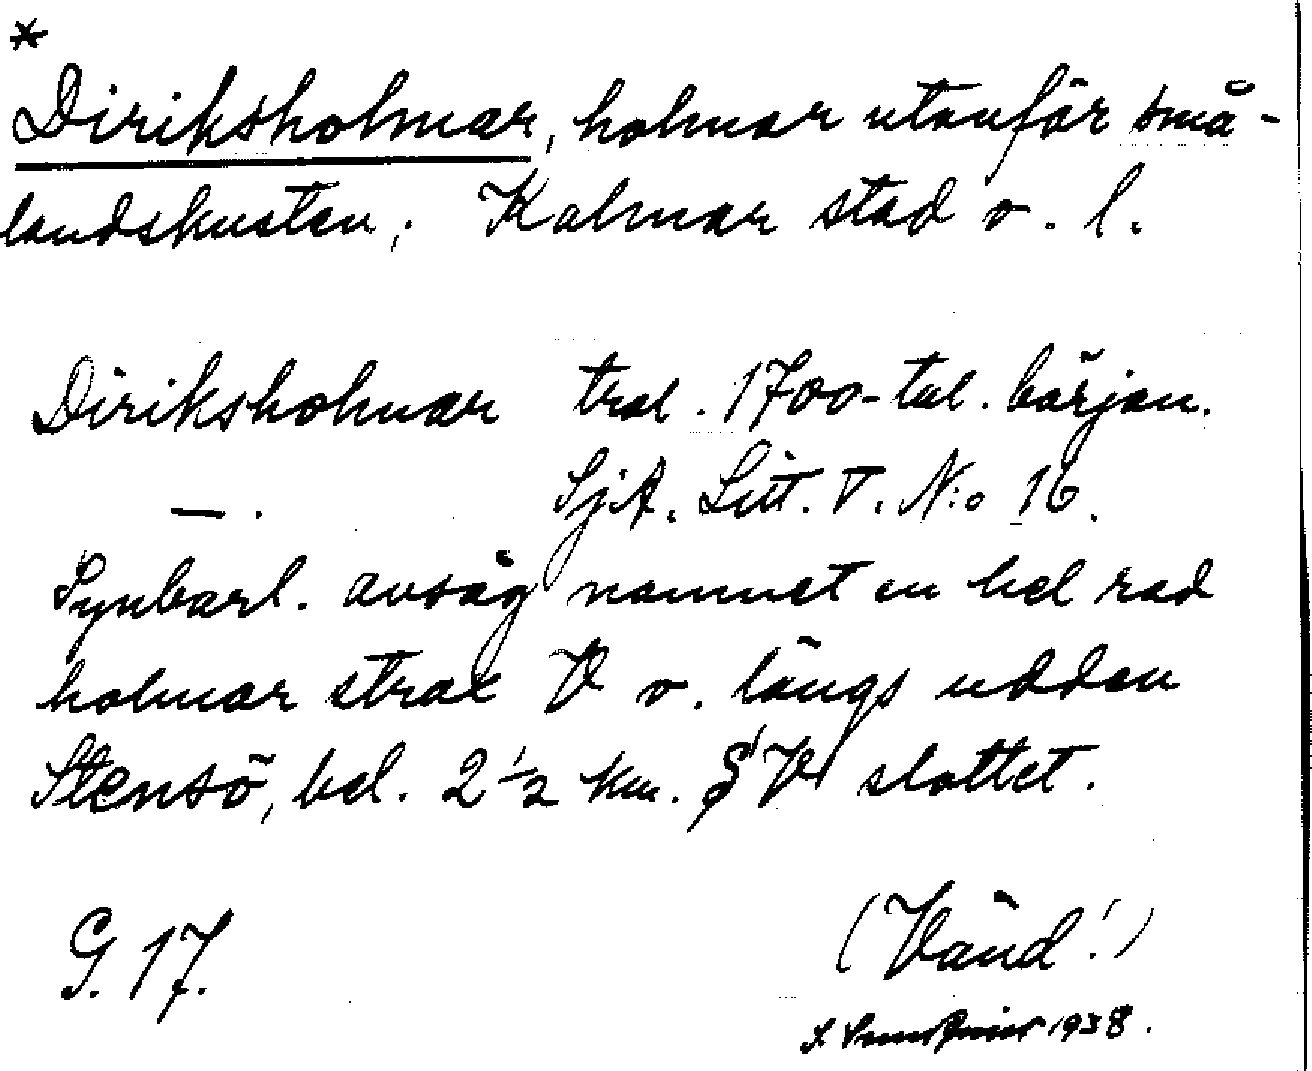 *
Diriksholmar, holmar utanför små-
landskusten; Kalmar stad o. l.
Diriksholmar trol. 1700-tal. början.
—. SjA. Litt. V. N:o 16.
Synbarl. avsåg namnet en hel rad
holmar strax V o. längs udden
Stensö, bel. 2 1/2 km. SV slottet.
G. 17.
(Vänd!)
1938.